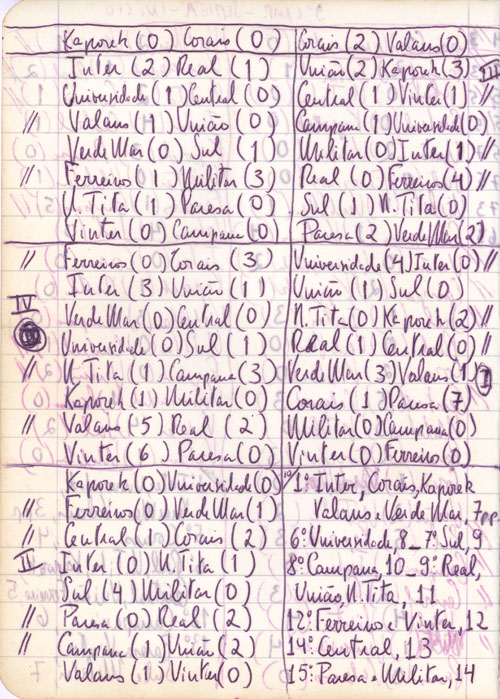 Kaporek (0) Corais (0)
Inter (2) Real (1)
Universidade (1) Central (0)
// Valans (1) União (0)
Verde Mar (0) Sul (1)
// Ferreiros (1) Militar (3)
N. Tita (1) Paresa (0)
Vinter (0) Campana (0)
// Ferreiros (0) Corais (3)
Inter (3) União (1)
IV Verde Mar (0) Central (0)
III Universidade (0) Sul (1)
// N. Tita (1) Campana (3)
Kaporek (1) Militar (0)
// Valans (5) Real (2)
// Vinter (6) Paresa (0)
Kaporek (0) Universidade (0)
// Ferreiros (0) Verde Mar (1)
// Central (1) Corais (2)
II Inter (0) N. Tita (1)
Sul (4) Militar (0)
// Paresa (0) Real (2)
// Campana (1) União (2)
Valans (1) Vinter (0)
Corais (2) Valans (0)
União (2) Kaporek (3) III
Central (1) Vinter (1) //
Campana (1) Universidade (0)
Militar (0) Inter (1) //
Real (0) Ferreiros (4) //
Sul (1) N. Tita (0)
Paresa (2) Verde Mar (2)
Universidade (4) Inter (0) //
União (1) Sul (0)
N. Tita (0) Kaporek (2) //
Real (1) Central (0) //
Verde Mar (3) Valans (1) I
Corais (1) Paresa (7)
Militar (0) Campana (0)
Vinter (0) Ferreiros (0)
1º Inter, Corais, Kaporek
Valans e Verde Mar, 7pp
6º Universidade, 8 _ 7º Sul, 9
8º Campana, 10 _ 9º Real,
União, N. Tita, 11
12º Ferreiros e Vinter, 12
14º Central, 13
15º Paresa e Militar, 14